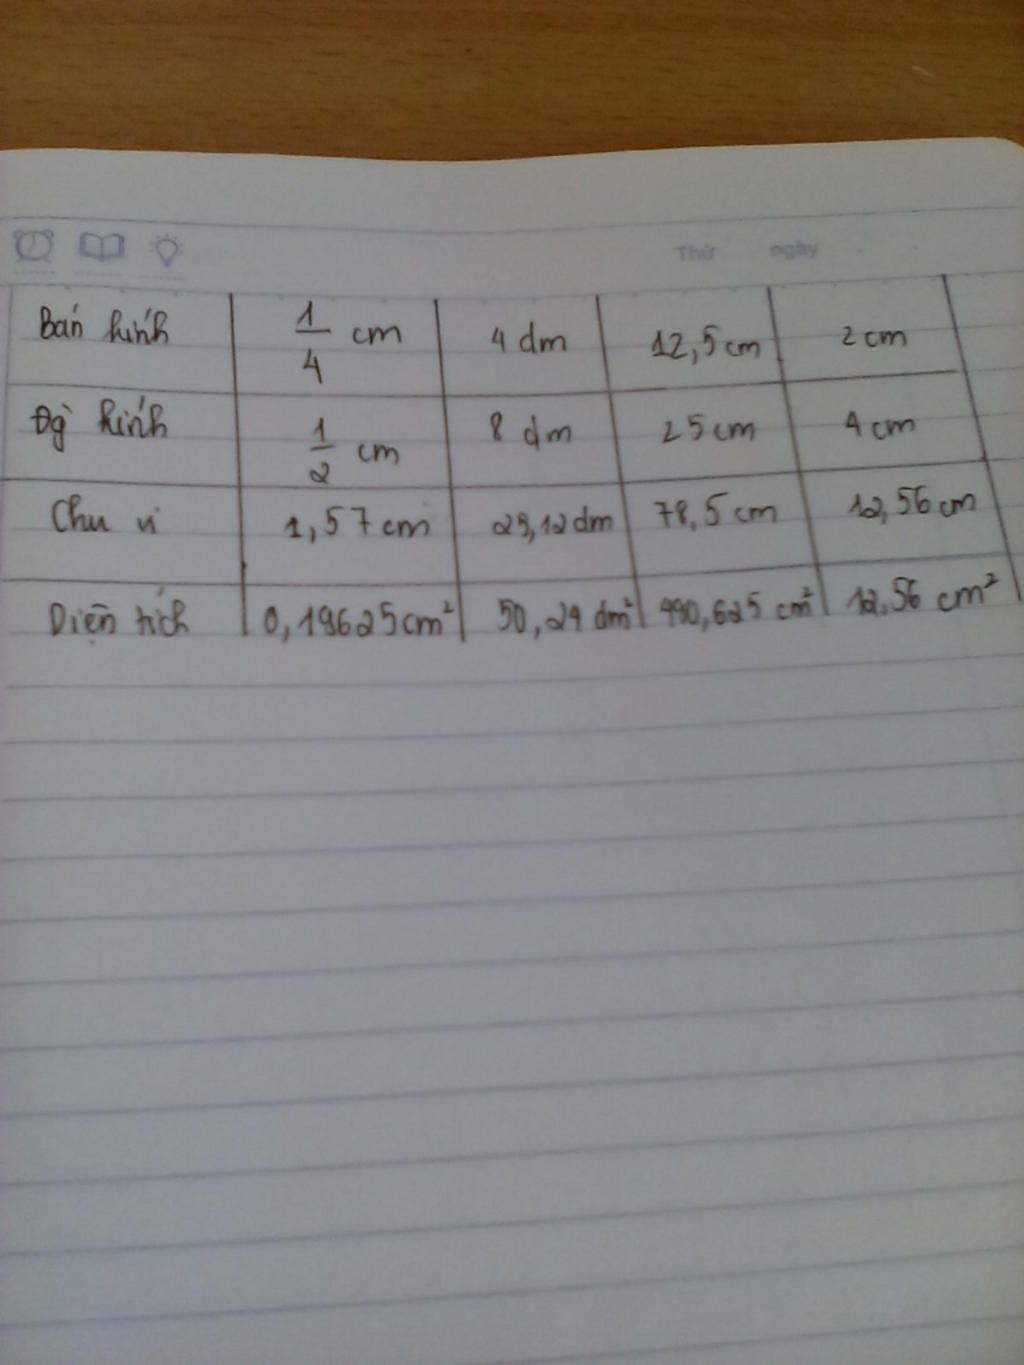 Thứ ngày
Bán kính 1/4 cm 4 dm 12,5 cm 2 cm
Đg kính 1/2 cm 8 dm 25 cm 4 cm
Chu vi 1,57 cm 25,12 dm 78,5 cm 12,56 cm
Diện tích 0,19625 cm² 50,24 dm² 490,625 cm² 12,56 cm²